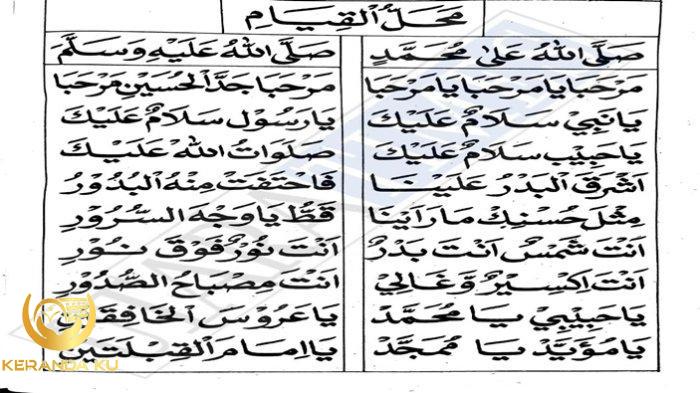 مَحَلُّ الْقِيَامِ
صَلَّى اللهُ عَلَى مُحَمَّدٍ صَلَّى اللهُ عَلَيْهِ وَسَلَّمَ
مَرْحَبًا يَا مَرْحَبًا يَا مَرْحَبَا مَرْحَبًا جَدَّ الْحُسَيْنِ مَرْحَبَا
يَا نَبِي سَلَامٌ عَلَيْكَ يَا رَسُول سَلَامٌ عَلَيْكَ
يَا حَبِيب سَلَامٌ عَلَيْكَ صَلَوَاتُ اللهِ عَلَيْكَ
اَشْرَقَ الْبَدْرُ عَلَيْنَا فَاحْتَفَتْ مِنْهُ الْبُدُوْرُ
مِثْلَ حُسْنِكْ مَا رَاَيْنَا قَطُّ يَا وَجْهَ السُّرُوْرِ
اَنْتَ شَمْسٌ اَنْتَ بَدْرٌ اَنْتَ نُوْرٌ فَوْقَ نُوْرِ
اَنْتَ اِكْسِيْرٌ وَّغَالِي اَنْتَ مِصْبَاحُ الصُّدُوْرِ
يَا حَبِيْبِي يَا مُحَمَّدْ يَا عَرُوْسَ الْخَافِقَيْنِ
يَا مُؤَيَّدْ يَا مُمَجَّدْ يَا اِمَامَ الْقِبْلَتَيْنِ
KERANDA KU